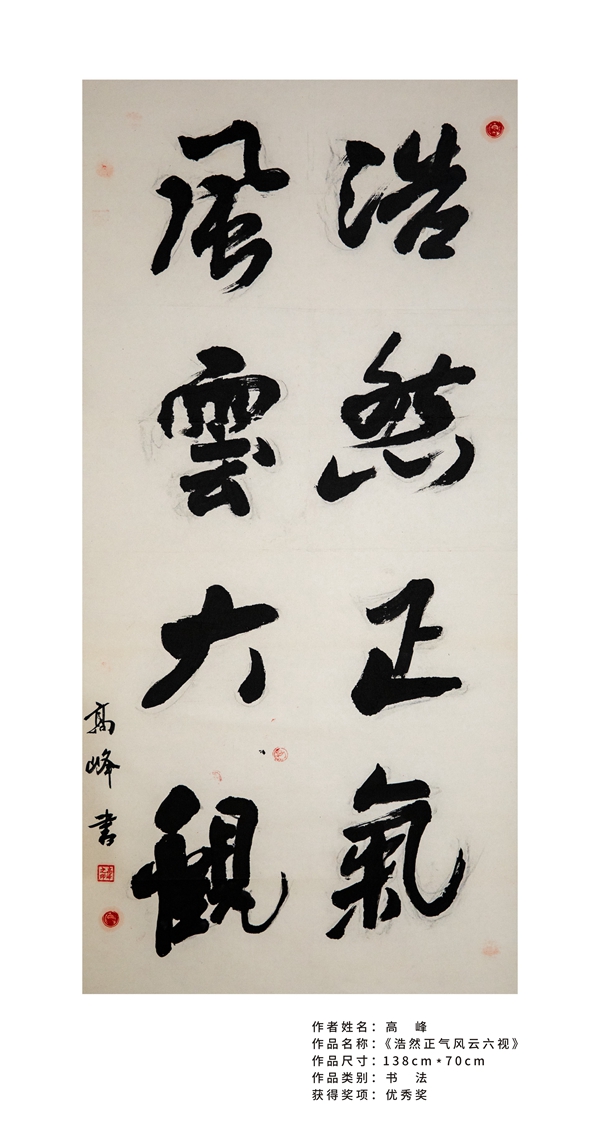 浩然正氣
風雲大觀
高峰書
作者姓名：高 峰
作品名称：《浩然正气风云六视》
作品尺寸：138cm*70cm
作品类别：书 法
获得奖项：优秀奖